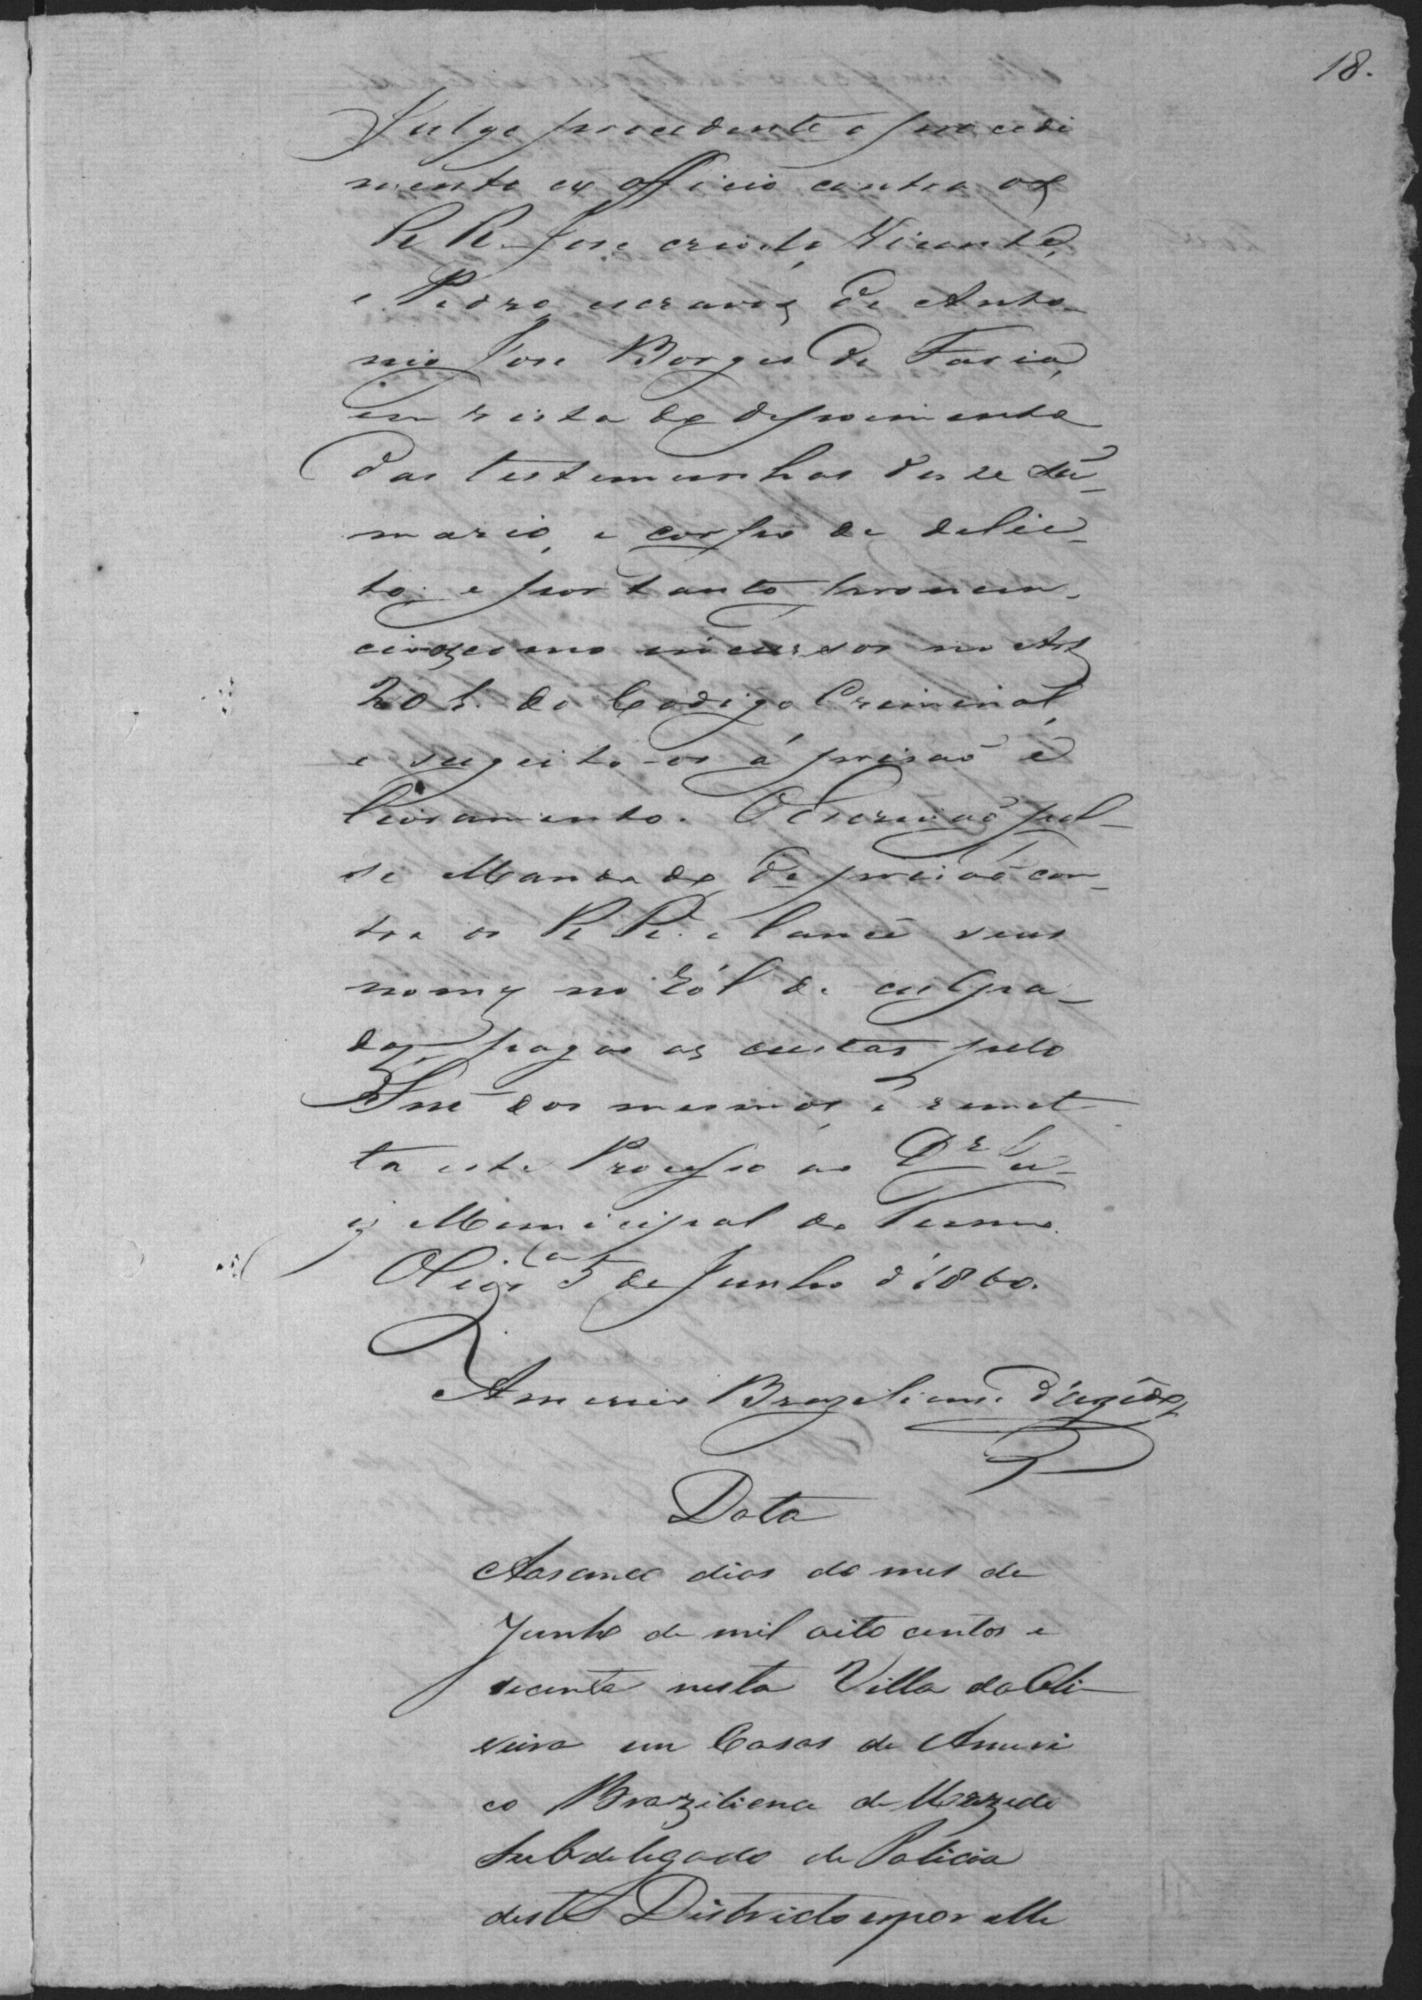 18.
Julgo procedente o procedi
mento ex officio contra os
R R. Jose crioulo, Vicente,
e Pedro escravos de Anto-
nio Jose Borges de Faria,
em vista do depoimento
das testemunhas deste su-
mario, e corpo de delic-
to; e portanto pronun-
cio os como incursos no Art
205. do Codigo Criminal,
e sugeito-os á prisaõ e
livramento. O Escrivaõ pas-
se Mandado de prisaõ con-
tra os R R. e lance seus
nomes no ról de culpa-
dos, pagas as custas pelo
Snr dos mesmos, e remet
ta este Processo ao Dr Ju-
iz Municipal do Termo.
Olivra 5 de Junho d'1860.
Americo Braziliano d'
Data
Aos cinco dias do mes de
Junho de mil oito centos e
secenta nesta Villa da Oli-
veira em Casas de Ameri
co Braziliano de
Subdelegado de Policia
deste Districto e por elle